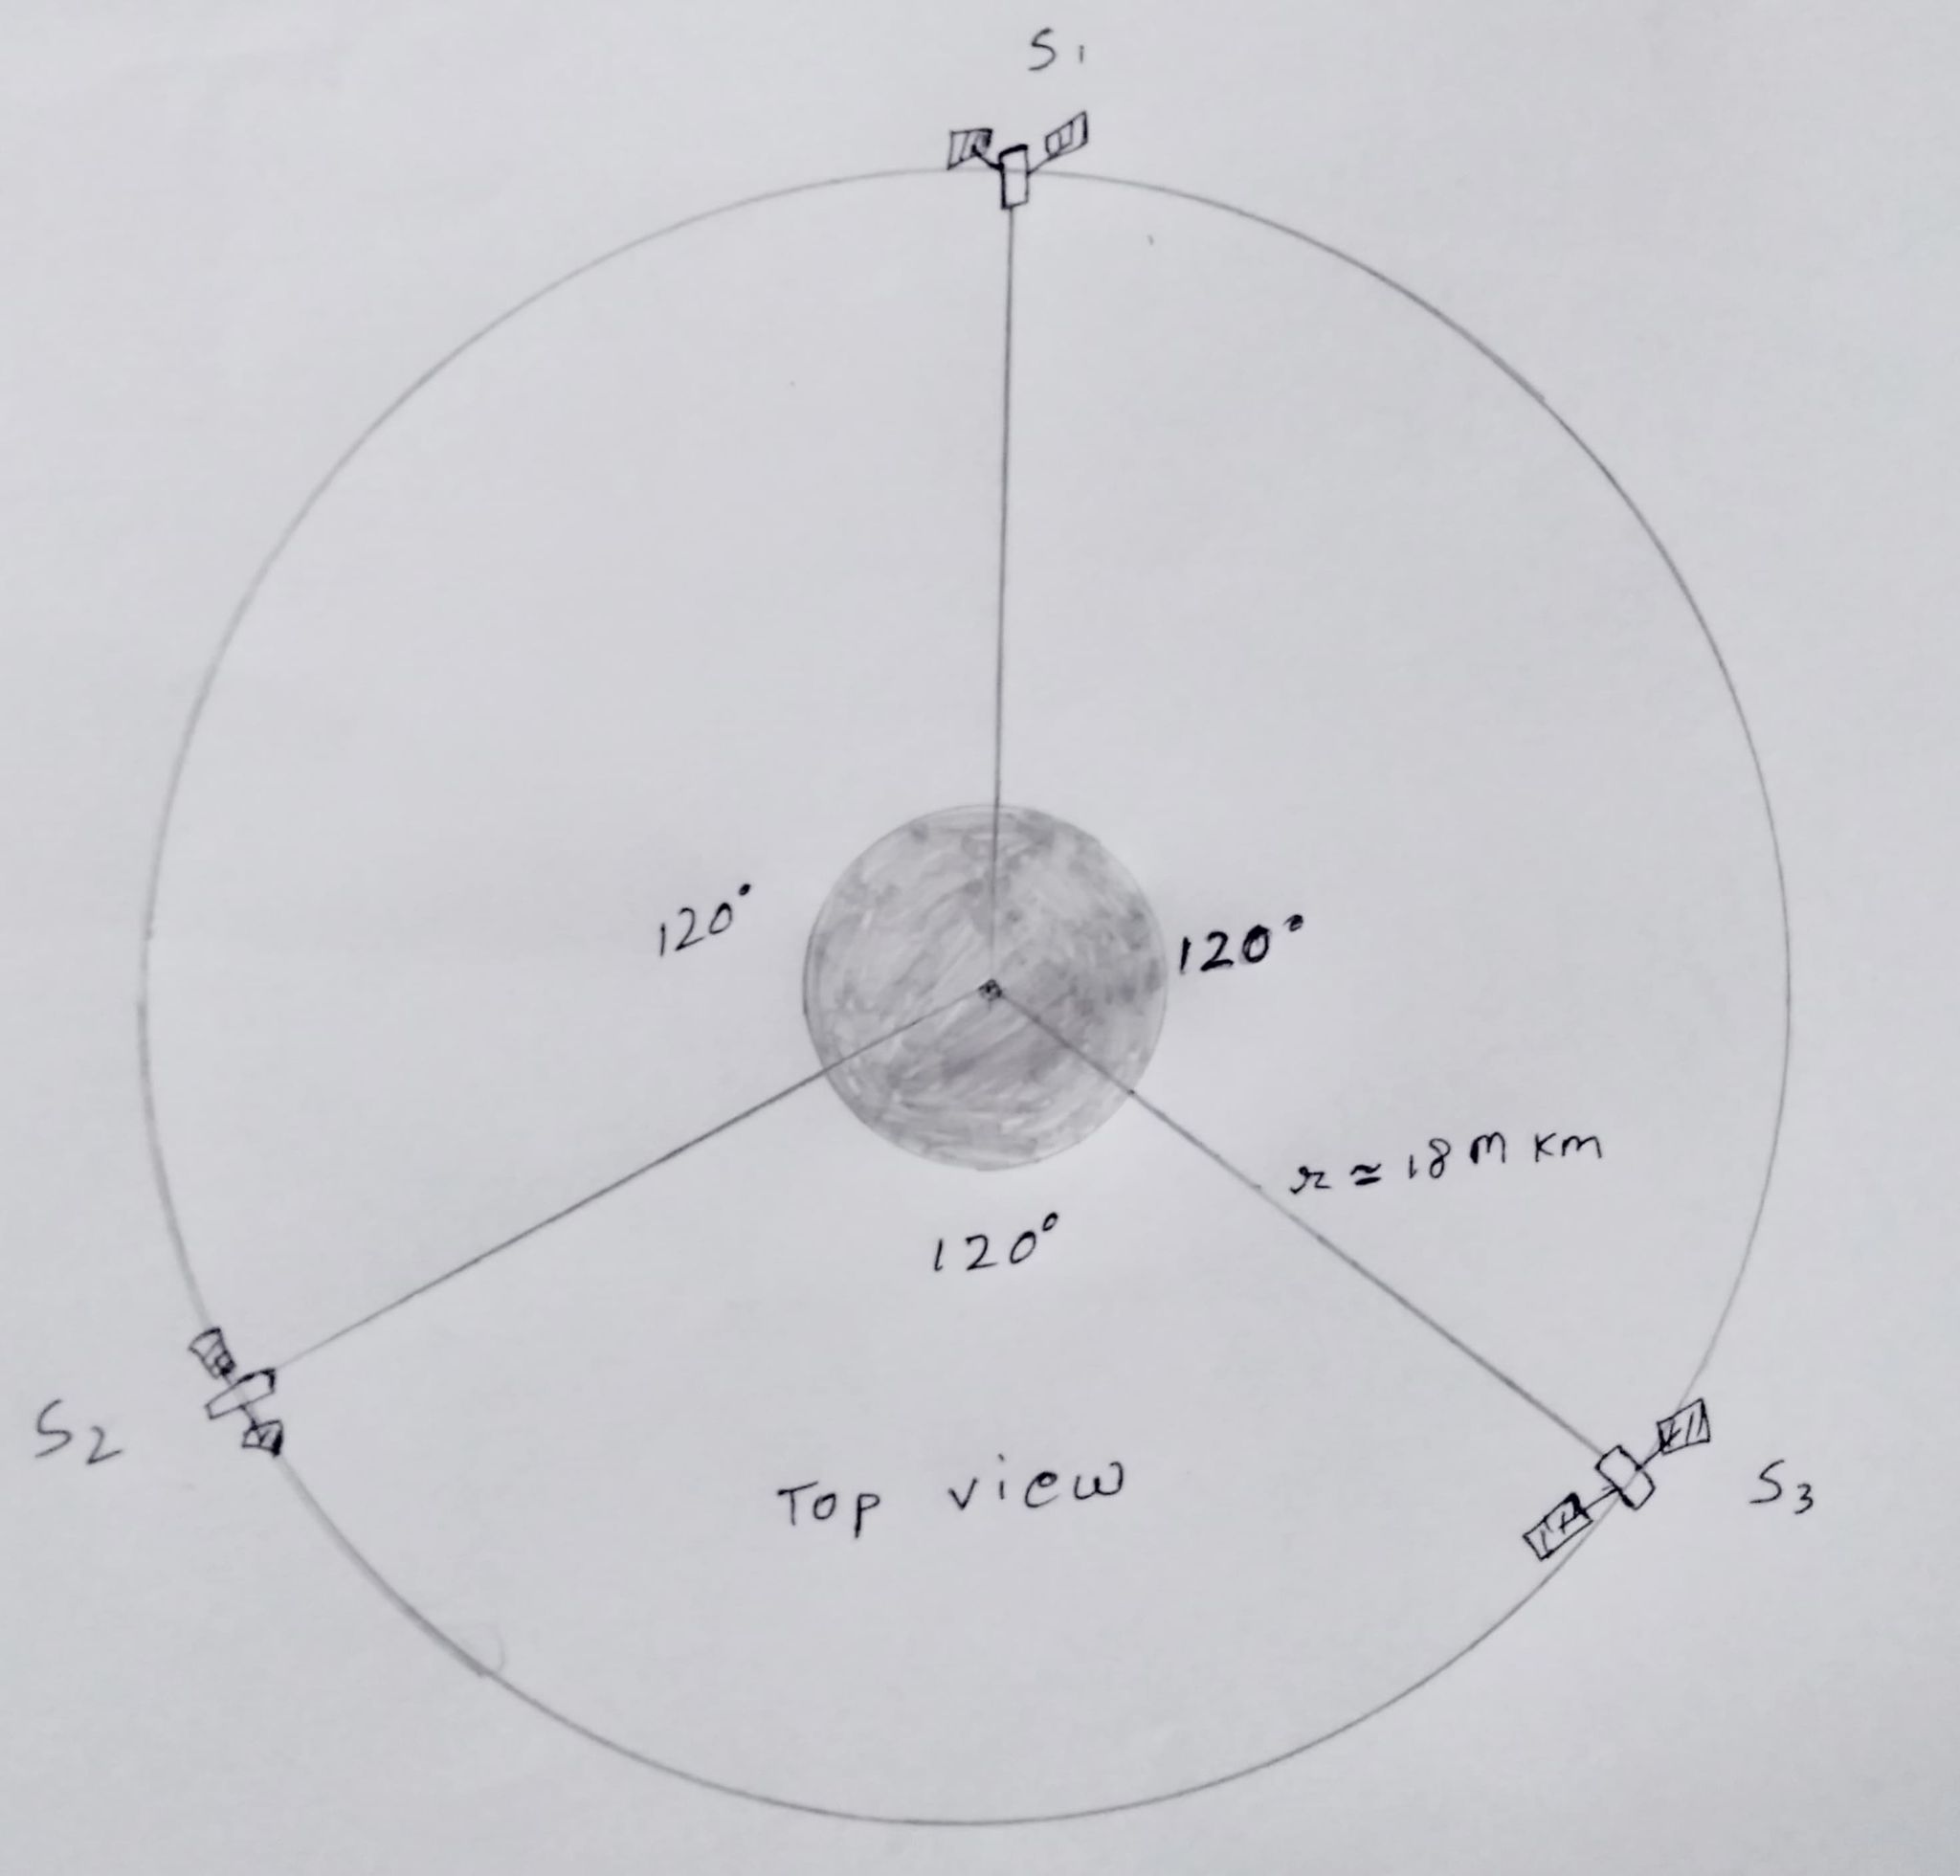 S1
120°
120°
r ≃ 18 M KM
120°
Top view
S2
S3